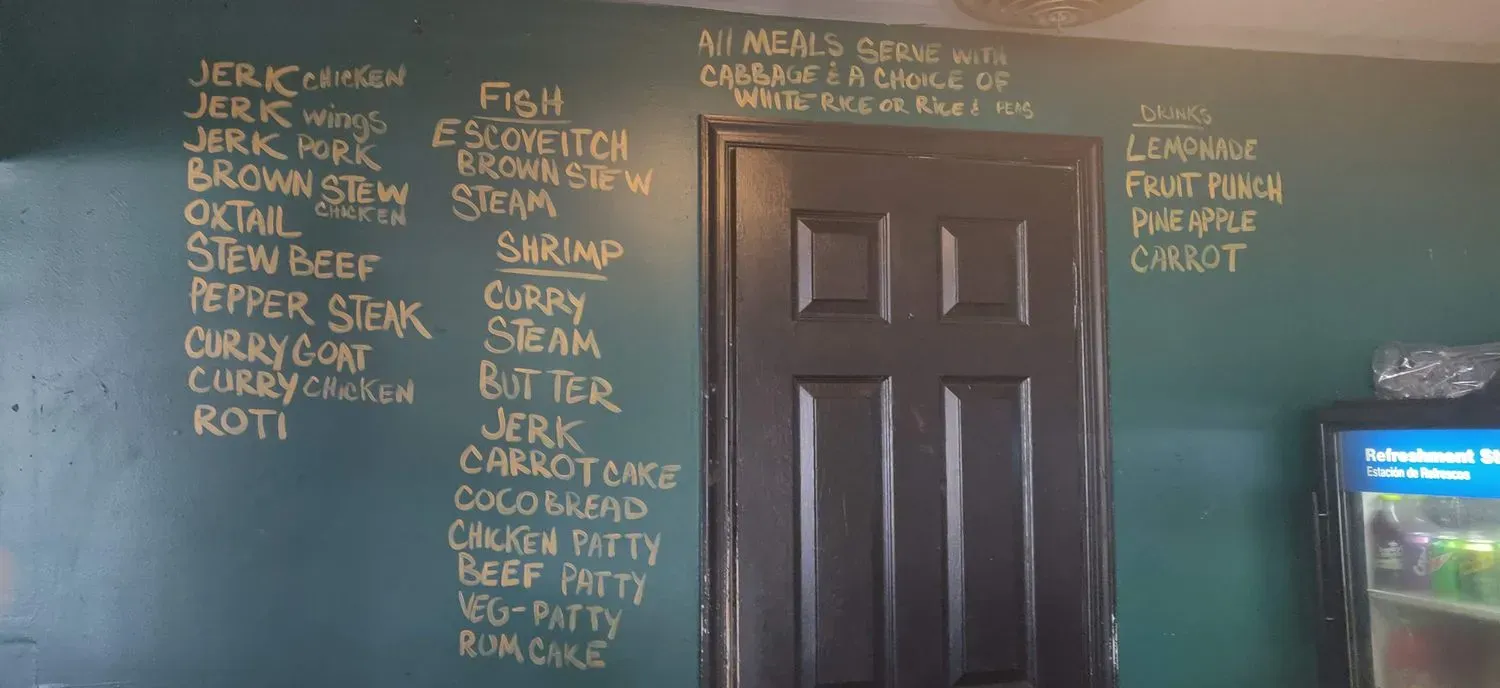 JERK CHICKEN
JERK wings
JERK PORK
BROWN STEW
CHICKEN
OXTAIL
STEW BEEF
PEPPER STEAK
CURRY GOAT
CURRY CHICKEN
ROTI
FISH
ESCOVEITCH
BROWN STEW
STEAM
SHRIMP
CURRY
STEAM
BUTTER
JERK
CARROT CAKE
COCO BREAD
CHICKEN PATTY
BEEF PATTY
VEG-PATTY
RUM CAKE
All MEALS SERVE WITH
CABBAGE & A CHOICE OF
WHITE RICE OR RICE & PEAS
DRINKS
LEMONADE
FRUIT PUNCH
PINEAPPLE
CARROT
Refreshment St
Estación de Refrescos